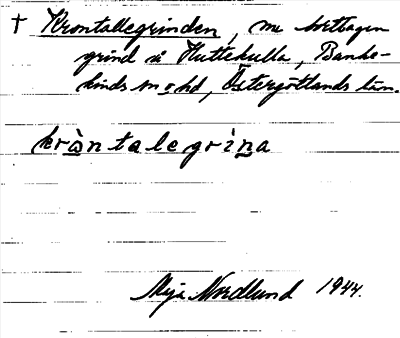 † Krontallegrinden, nu borttagen
grind vi Huttekulla, Banke-
kinds sn o hd, Östergötlands län.
kròntalegrìna
Maja Nordlund 1944.